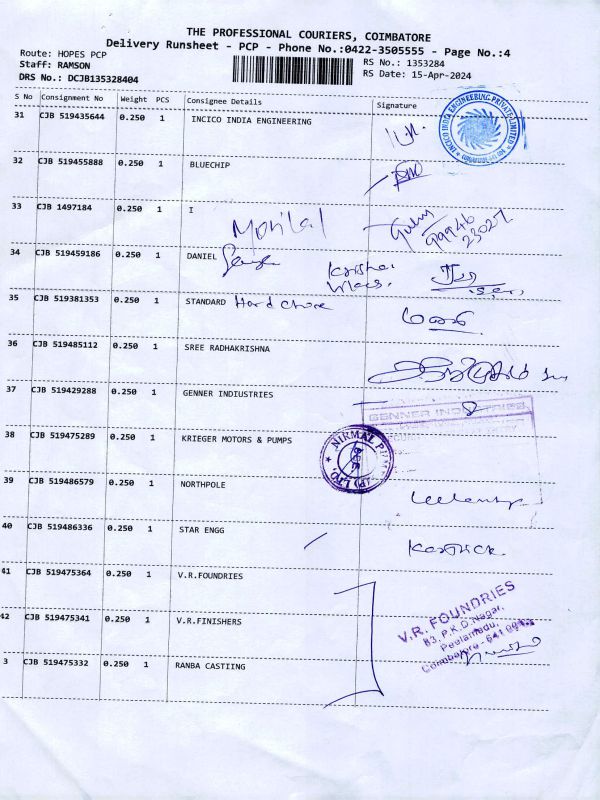 THE PROFESSIONAL COURIERS, COIMBATORE
Delivery Runsheet - PCP - Phone No.:0422-3505555 - Page No.:4
Route: HOPES PCP
Staff: RAMSON
DRS No.: DCJB135328404
RS No.: 1353284
RS Date: 15-Apr-2024
S No Consignment No Weight PCS Consignee Details Signature
31 CJB 519435644 0.250 1 INCICO INDIA ENGINEERING
INCICO INDIA ENGINEERING PRIVATE LIMITED
32 CJB 519455888 0.250 1 BLUECHIP
33 CJB 1497184 0.250 1 I
99946
23027
34 CJB 519459186 0.250 1 DANIEL
35 CJB 519381353 0.250 1 STANDARD Hard chrome
36 CJB 519485112 0.250 1 SREE RADHAKRISHNA
37 CJB 519429288 0.250 1 GENNER INDIUSTRIES
GENNER INDUSTRIES
38 CJB 519475289 0.250 1 KRIEGER MOTORS & PUMPS
NIRMAL PUMPS (P) LTD.
39 CJB 519486579 0.250 1 NORTHPOLE
40 CJB 519486336 0.250 1 STAR ENGG
Karthick.
41 CJB 519475364 0.250 1 V.R.FOUNDRIES
42 CJB 519475341 0.250 1 V.R.FINISHERS
V.R. FOUNDRIES
83, P.K.D. Nagar,
Peelamedu,
Coimbatore - 641 004
3 CJB 519475332 0.250 1 RANBA CASTIING